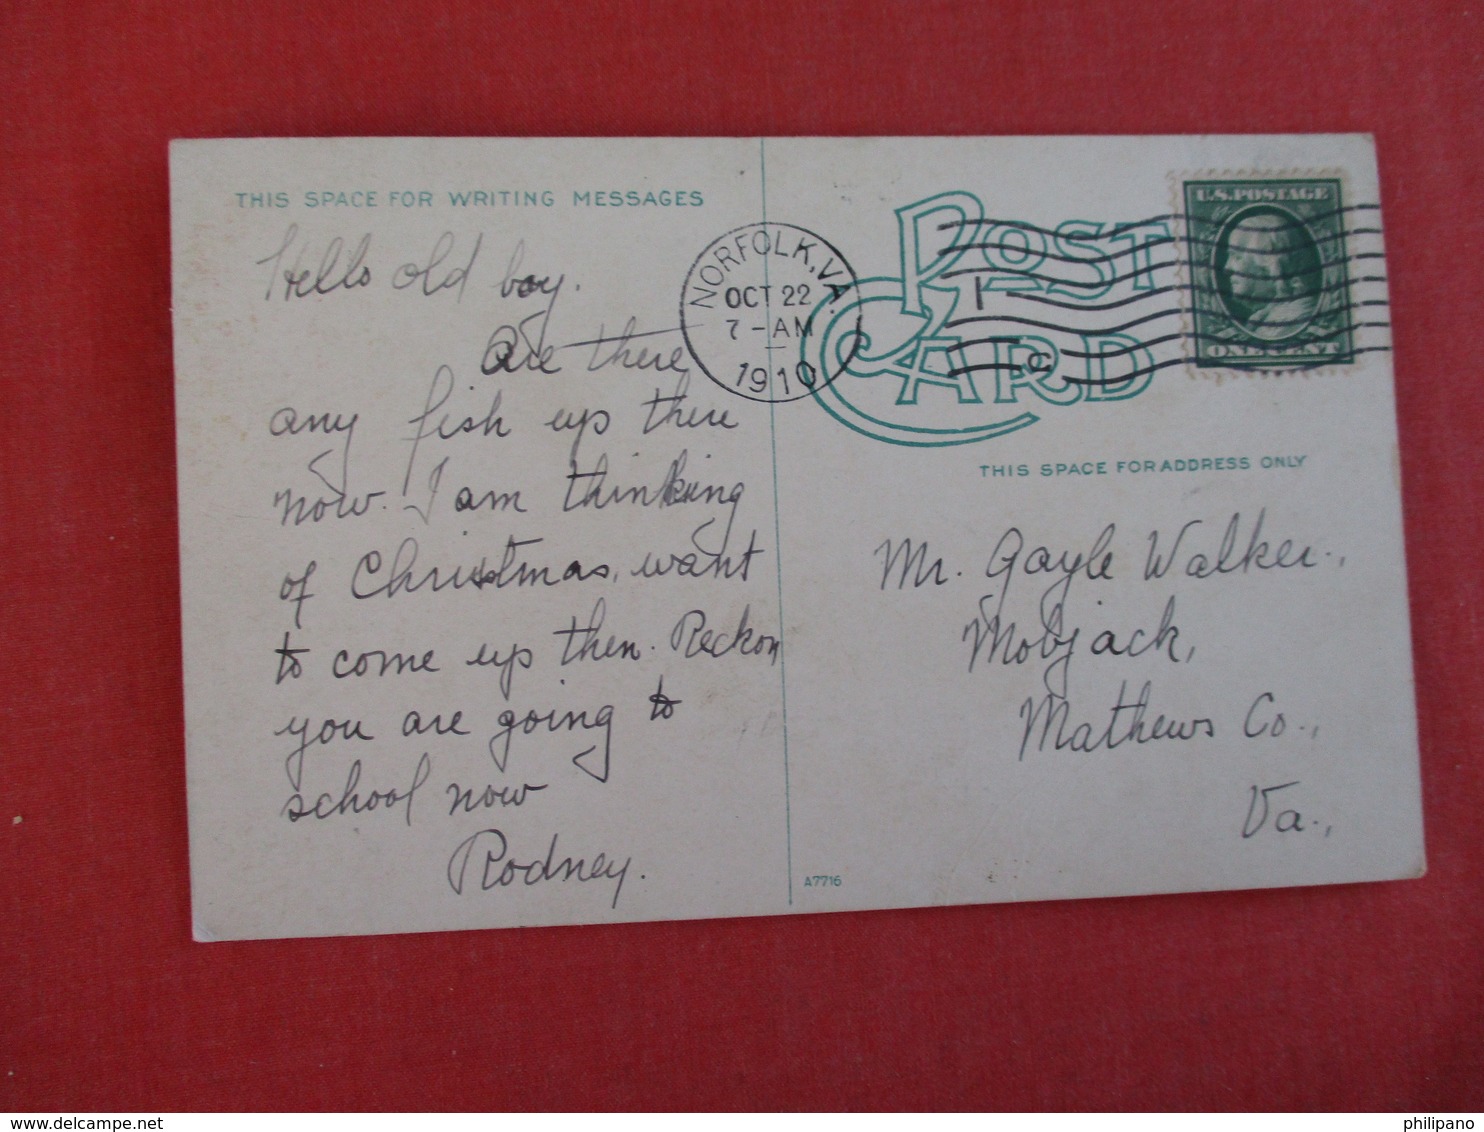 THIS SPACE FOR WRITING MESSAGES
Hello old boy.
Are there
any fish up there
now. I am thinking
of Christmas, want
to come up then. Reckon
you are going to
school now
Rodney.
NORFOLK, VA.
OCT 22
7-AM
1910
POST
CARD
U.S. POSTAGE
ONE CENT
THIS SPACE FOR ADDRESS ONLY
Mr. Gayle Walker.,
Mobjack,
Mathews Co.,
Va.,
A7716
philipano